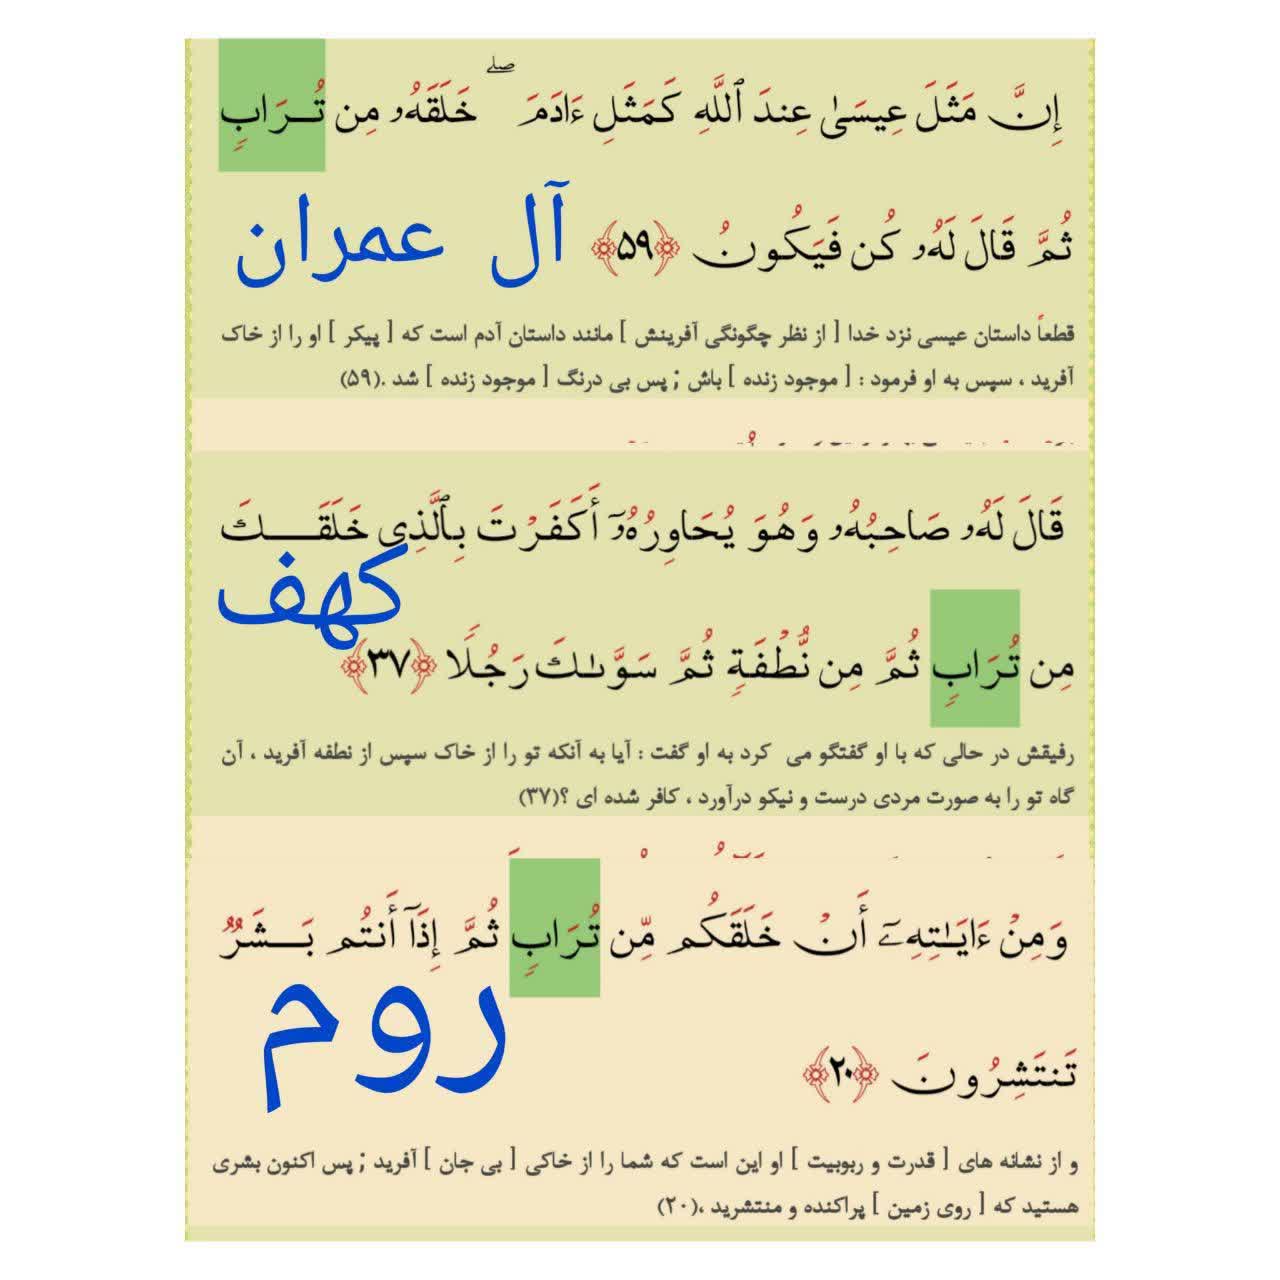 إِنَّ مَثَلَ عِيسَىٰ عِندَ ٱللَّهِ كَمَثَلِ ءَادَمَ ۖ خَلَقَهُۥ مِن تُرَابٍ
ثُمَّ قَالَ لَهُۥ كُن فَيَكُونُ ﴿۵۹﴾ آل عمران
قطعاً داستان عیسی نزد خدا [ از نظر چگونگی آفرینش ] مانند داستان آدم است که [ پیکر ] او را از خاک
آفرید ، سپس به او فرمود : [ موجود زنده ] باش ; پس بی درنگ [ موجود زنده ] شد .(۵۹)
قَالَ لَهُۥ صَاحِبُهُۥ وَهُوَ يُحَاوِرُهُۥٓ أَكَفَرْتَ بِٱلَّذِى خَلَقَكَ
کهف
مِن تُرَابٍ ثُمَّ مِن نُّطْفَةٍ ثُمَّ سَوَّىٰكَ رَجُلًا ﴿۳۷﴾
رفیقش در حالی که با او گفتگو می کرد به او گفت : آیا به آنکه تو را از خاک سپس از نطفه آفرید ، آن
گاه تو را به صورت مردی درست و نیکو درآورد ، کافر شده ای ؟(۳۷)
وَمِنْ ءَايَـٰتِهِۦٓ أَنْ خَلَقَكُم مِّن تُرَابٍ ثُمَّ إِذَآ أَنتُم بَشَرٌ
روم
تَنتَشِرُونَ ﴿۲۰﴾
و از نشانه های [ قدرت و ربوبیت ] او این است که شما را از خاکی [ بی جان ] آفرید ; پس اکنون بشری
هستید که [ روی زمین ] پراکنده و منتشرید ،(۲۰)